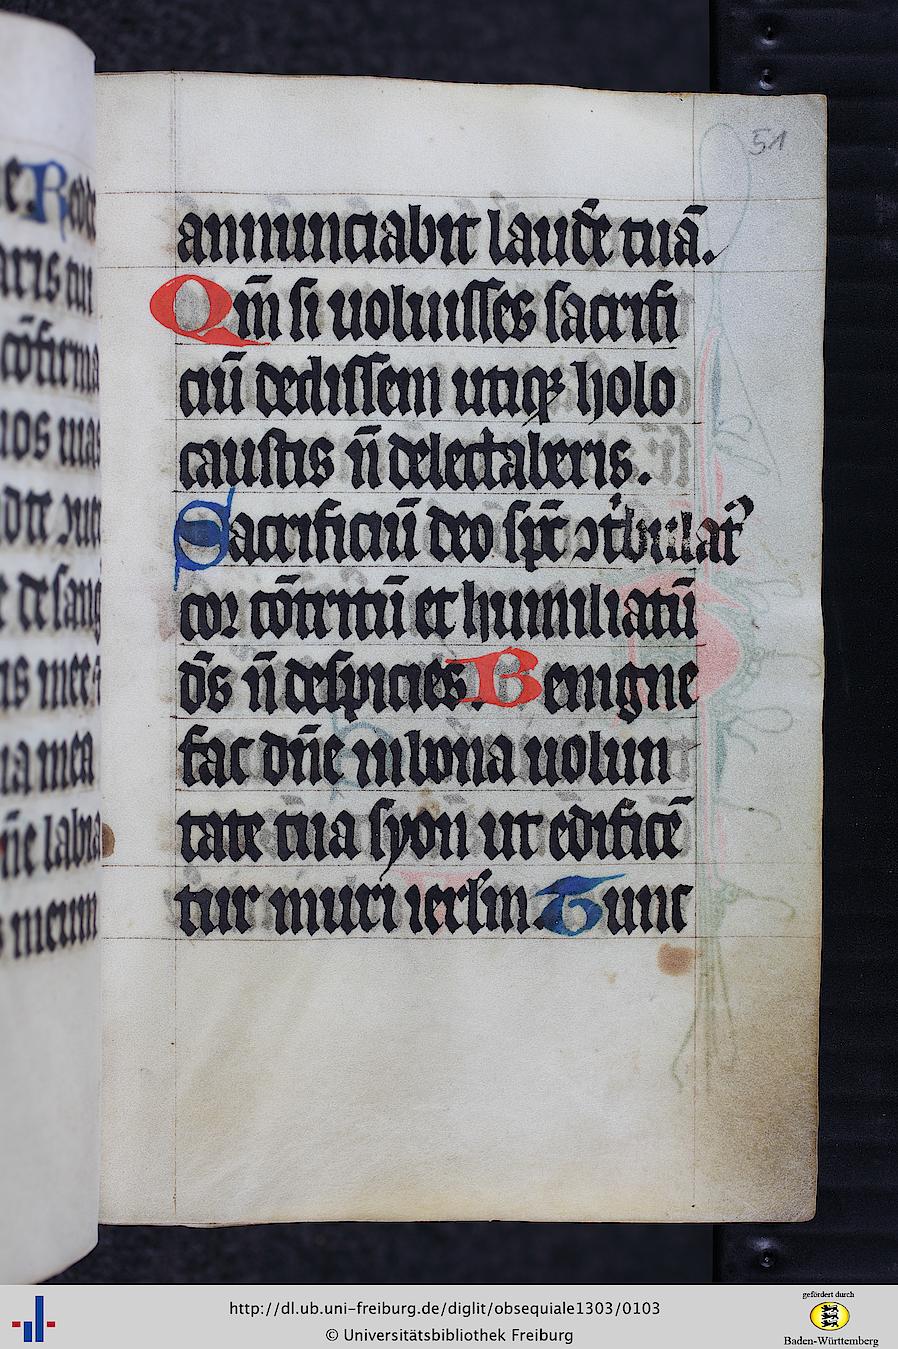 51
annunciabit laudē tuā.
Qm̄ si uoluisses sacrifi
ciū dedissem utiqꝫ holo
caustis n̄ delectaberis.
Sacrificiū deo spc̄ ↄt'bulat᷑
cor cōtritū et humiliatū
ds̄ n̄ despicies. Benigne
fac dn̄e in bona uolun
tate tua syon ut edificē
tur muri ierl̄m. Tunc
http://dl.ub.uni-freiburg.de/diglit/obsequiale1303/0103
© Universitätsbibliothek Freiburg
gefördert durch
Baden-Württemberg